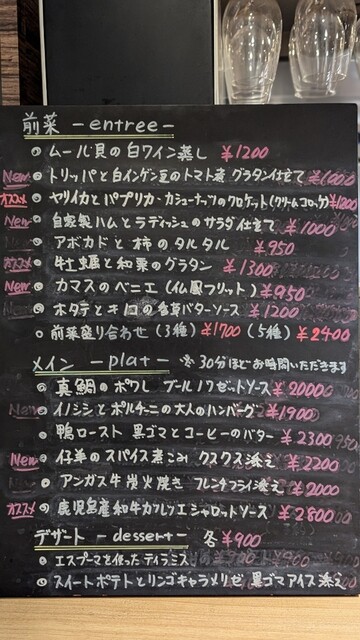 前菜 -entree-
・ムール貝の白ワイン蒸し ¥1200
New ・トリッパと白インゲン豆のトマト煮 グラタン仕立て
オススメ ・ヤリイカとパプリカ・カシューナッツのクロケット(クリームコロッケ)
New ・自家製ハムとラディッシュのサラダ仕立て ¥1000
・アボカドと柿のタルタル ¥950
オススメ ・牡蠣と和栗のグラタン ¥1300
New ・カマスのベニエ(仏風フリット) ¥950
・ホタテとキノコの香草バターソース ¥1200
・前菜盛り合わせ (3種) ¥1700 (5種) ¥2400
メイン -plat- ※30分ほどお時間いただきます
・真鯛のポワレ ブールノワゼットソース
New ・イノシシとポルチーニの大人のハンバーグ ¥1900
・鴨ロースト 黒ゴマとコーヒーのバター ¥2300
New ・仔羊のスパイス煮こみ クスクス添え ¥2200
・アンガス牛炭火焼き フレンチフライ添え ¥2000
オススメ ・鹿児島産和牛カルフェンエシャロットソース ¥2800
デザート -dessert- 各¥900
・エスプーマを使ったティラミス
・スイートポテトとリンゴキャラメリゼ 黒ゴマアイス添え